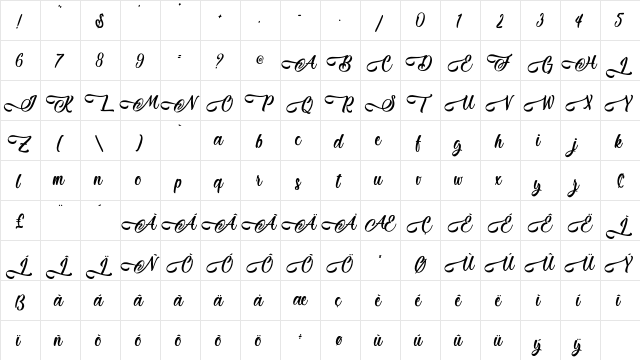 ! " $ ' * + , - . / 0 1 2 3 4 5
6 7 8 9 = ? @ A B C D E F G H I
J K L M N O P Q R S T U V W X Y
Z ( \ ) ` a b c d e f g h i j k
l m n o p q r s t u v w x y z ¢
£ ¨ À Á Â Ã Ä Å Æ Ç È É Ê Ë Ì
Í Î Ï Ñ Ò Ó Ô Õ Ö Ø Ù Ú Û Ü Ý
ß à á â ã ä å æ ç è é ê ë ì í î
ï ñ ò ó ô õ ö ÷ ø ù ú û ü ý ÿ